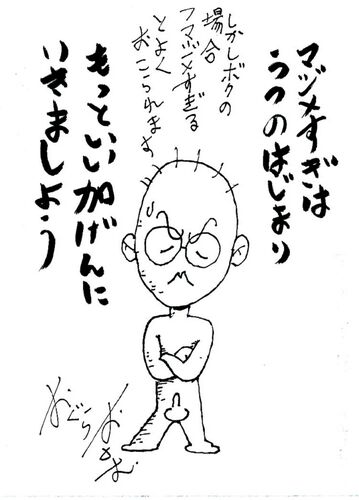 マジメすぎは
うつのはじまり
しかしボクの
場合
フマジメすぎる
とよく
おこられます
もっといい加げんに
いきましょう
おぐらおさむ